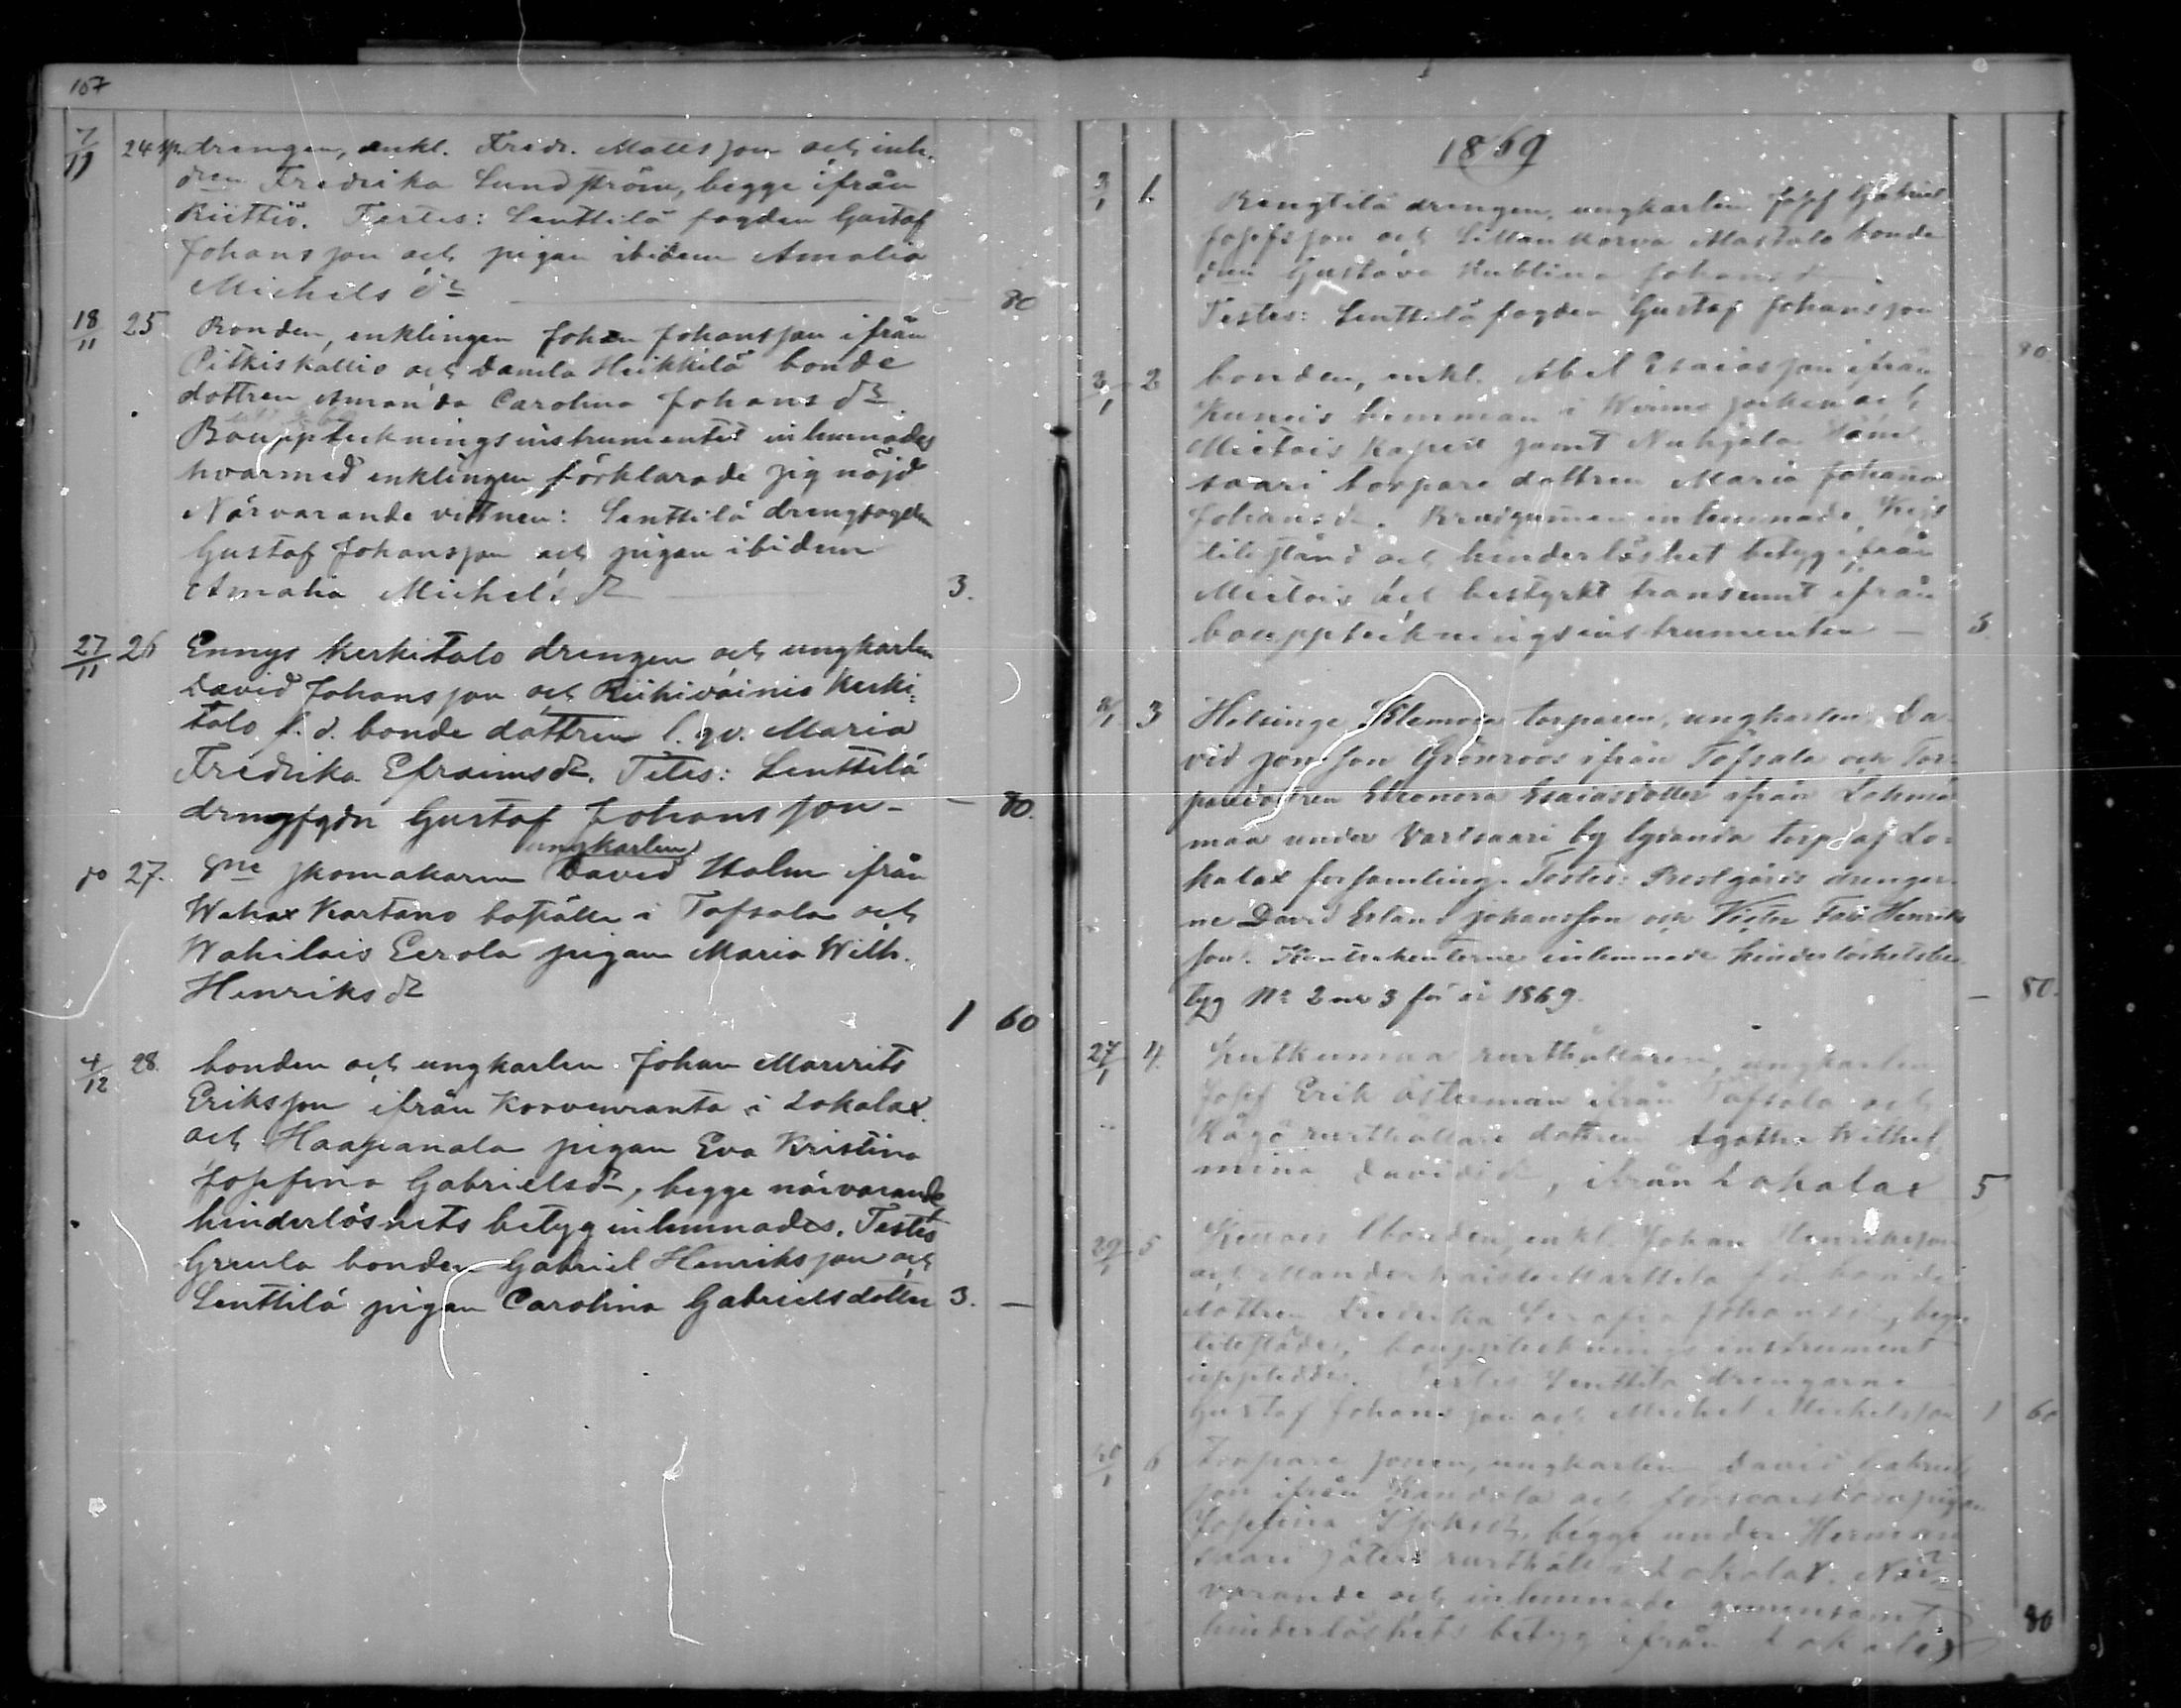 167
7/11 24 drengen, enkl. Fredr. Mattsson och inh.
dren Fredrika Lundström, begge ifrån
Riittiö. Testes: Lenttilä fogden Gustaf
Johansson och pigan ibidem Amalia
Michelsdr — 80
18/11 25 Bonden, enklingen Johan Johansson ifrån
Pitkiskallio och Damla Heikkilä bonde
dottren Amanda Carolina Johansdr.
Bouppteckningsinstrumentet inlemnades
hvarmed enklingen förklarade sig nöjd
Närvarande vittnen: Lenttilä drengfogden
Gustaf Johansson och pigan ibidem
Amalia Michelsdr 3.
27/11 26 Ennys Kerkitalo drengen och ungkarlen
David Johansson och Riihiväinis Kerki:
talo f. d. bonde dottren l. qv. Maria
Fredrika Efraimsdr. Tetes: Lenttilä
drengfgdn Gustaf Johansson — 80.
do 27. Sne skomakaren David Holm ifrån
ungkarlen
Wehax Kartano boställe i Töfsala och
Wahilais Eerola pigan Maria Wilh.
Henriksdr
1 60
4/12 28. bonden och ungkarlen Johan Maurits
Eriksson ifrån Korvenranta i Lokalax
och Haapanala pigan Eva Kristina
Josefina Gabrielsdr, begge närvarande
hinderlöshets betyg inlemnades. Testes
bonden Gabriel Henriksson och
Lenttilä pigan Carolina Gabrielsdotter 3. —
1869
3/1 1. drengen, ungkarlen Josef Gabriel
Josefsson och Mastalo bonde
Gustava Johansdr
Testes: Lenttilä fogden Gustaf Johansson
80.
3/1 2 bonden, enkl. Abel Esaiasson ifrån
hemman i Wirmo socken och
Mietois Kapell samt Nuhjala
saari torpare dottren Maria Johanna
Johansdr. Brudgumen inlemnade,
tillstånd och hinderlöshet betyg ifrån
Mietois och bestyrkt transumt ifrån
bouppteckningsinstrumenten — 3.
3 Helsinge torparen, ungkarlen, Da-
vid Jonsson Grönroos ifrån Töfsala och Tor-
paredottren Eleonora Esaiasdotter ifrån Lohma
maa under Vartsaari by lydande torp af Lo-
kalax församling. Testes: Prestgårds drengar-
ne David Erland Johansson och Victor Henriks
son. Kontrahenterne inlemnade hinderlöshetsbe
tyg No 2 och 3 för år 1869. — 80.
27/1 4. rusthållaren, ungkarlen
Josef Erik Österman ifrån Töfsala och
Kågö rusthållare dottren Agatha Wilhel-
mina Davidsdr, ifrån Lokalax 5
29/1 5 bonden, enkl. Johan Henriksson
och Marttila f. d. bonde
dottren Fredrika Serafia Johansdr, begge
tillstädes, bouppteckningsinstrument
uppteddes. Testes Lenttilä drengarne
Gustaf Johansson och Michel Michelsson 1 60
30/1 6 Torpare sonen, ungkarlen David Gabriels
son ifrån och pigan
Josefina begge under Herman
saari säteri rusthåll i Lokalax. När-
varande och inlemnade gemensamt
hinderlöshets betyg ifrån Lokalax 80